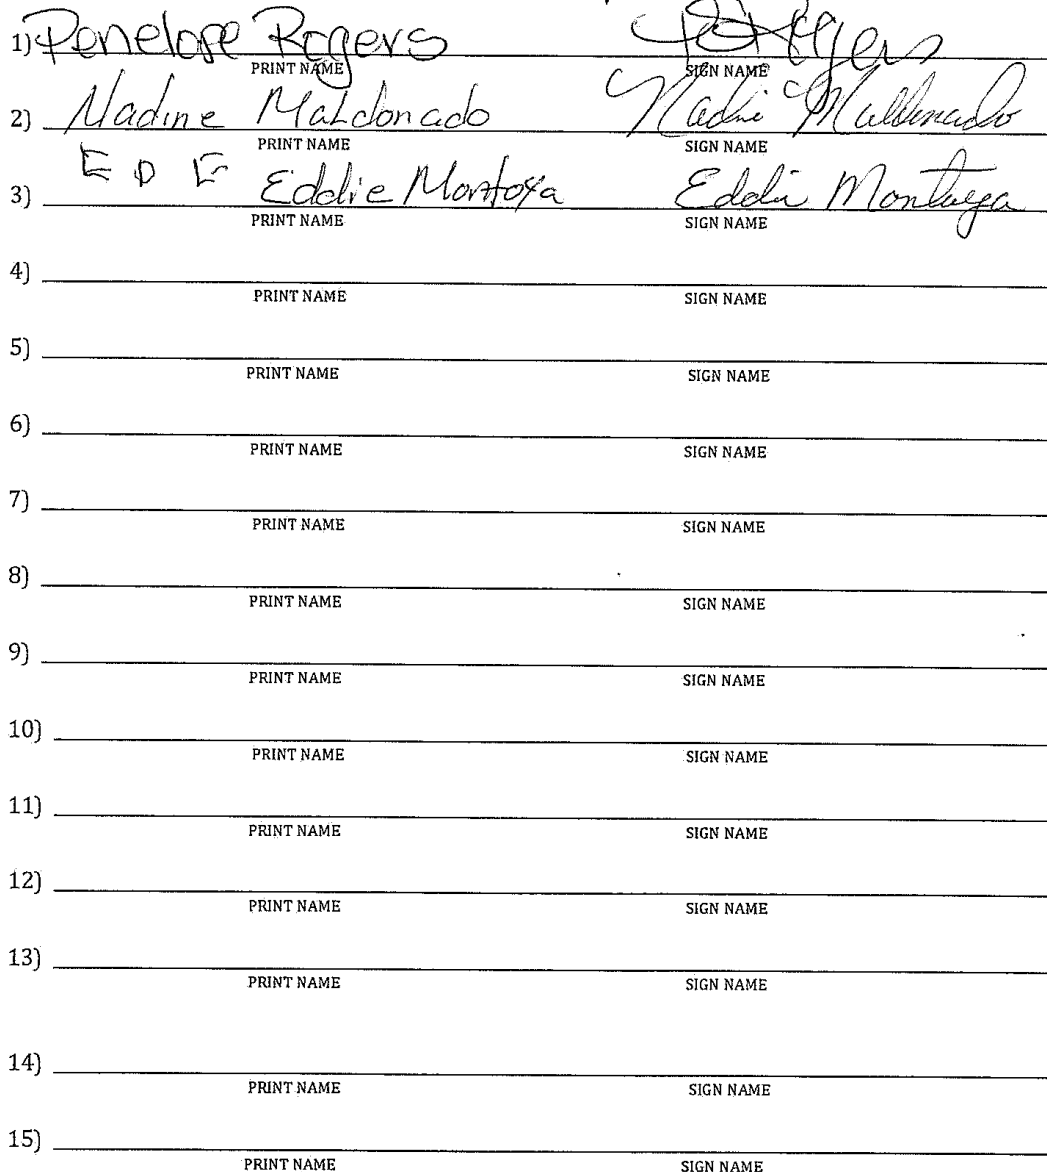 1) Penelope Rogers Rogers
PRINT NAME SIGN NAME
2) Nadine Maldonado Nadine Maldonado
PRINT NAME SIGN NAME
3) E D E Eddie Montoya Eddie Montoya
PRINT NAME SIGN NAME
4)
PRINT NAME SIGN NAME
5)
PRINT NAME SIGN NAME
6)
PRINT NAME SIGN NAME
7)
PRINT NAME SIGN NAME
8)
PRINT NAME SIGN NAME
9)
PRINT NAME SIGN NAME
10)
PRINT NAME SIGN NAME
11)
PRINT NAME SIGN NAME
12)
PRINT NAME SIGN NAME
13)
PRINT NAME SIGN NAME
14)
PRINT NAME SIGN NAME
15)
PRINT NAME SIGN NAME